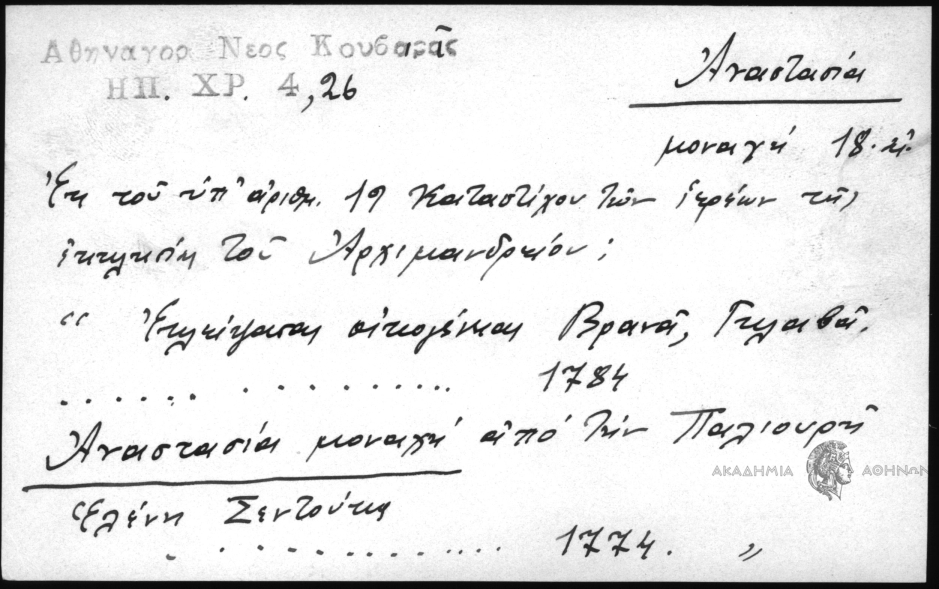 Αθηναγορ Νεος Κουβαρᾶς
ΗΠ. ΧΡ. 4, 26
Ἀναστασία
μοναχή 18. αἰ.
Ἐκ τοῦ ὑπ' ἀριθμ. 19 Καταστίχου τῶν ἱερέων τῆς
ἐκκλησίας τοῦ Ἀρχιμανδρείου;
“ Ἐκλείψασαι οἰκογένειαι Βρανᾶ, Γκλαβᾶ,
. . . . . . . . . . . . . . . . 1784
Ἀναστασία μοναχή ἀπό τήν Παλιουρῆ
ΑΚΑΔΗΜΙΑ ΑΘΗΝΩΝ
Ἑλένη Σεντούκα
. . . . . . . . . . . . . . 1774. „